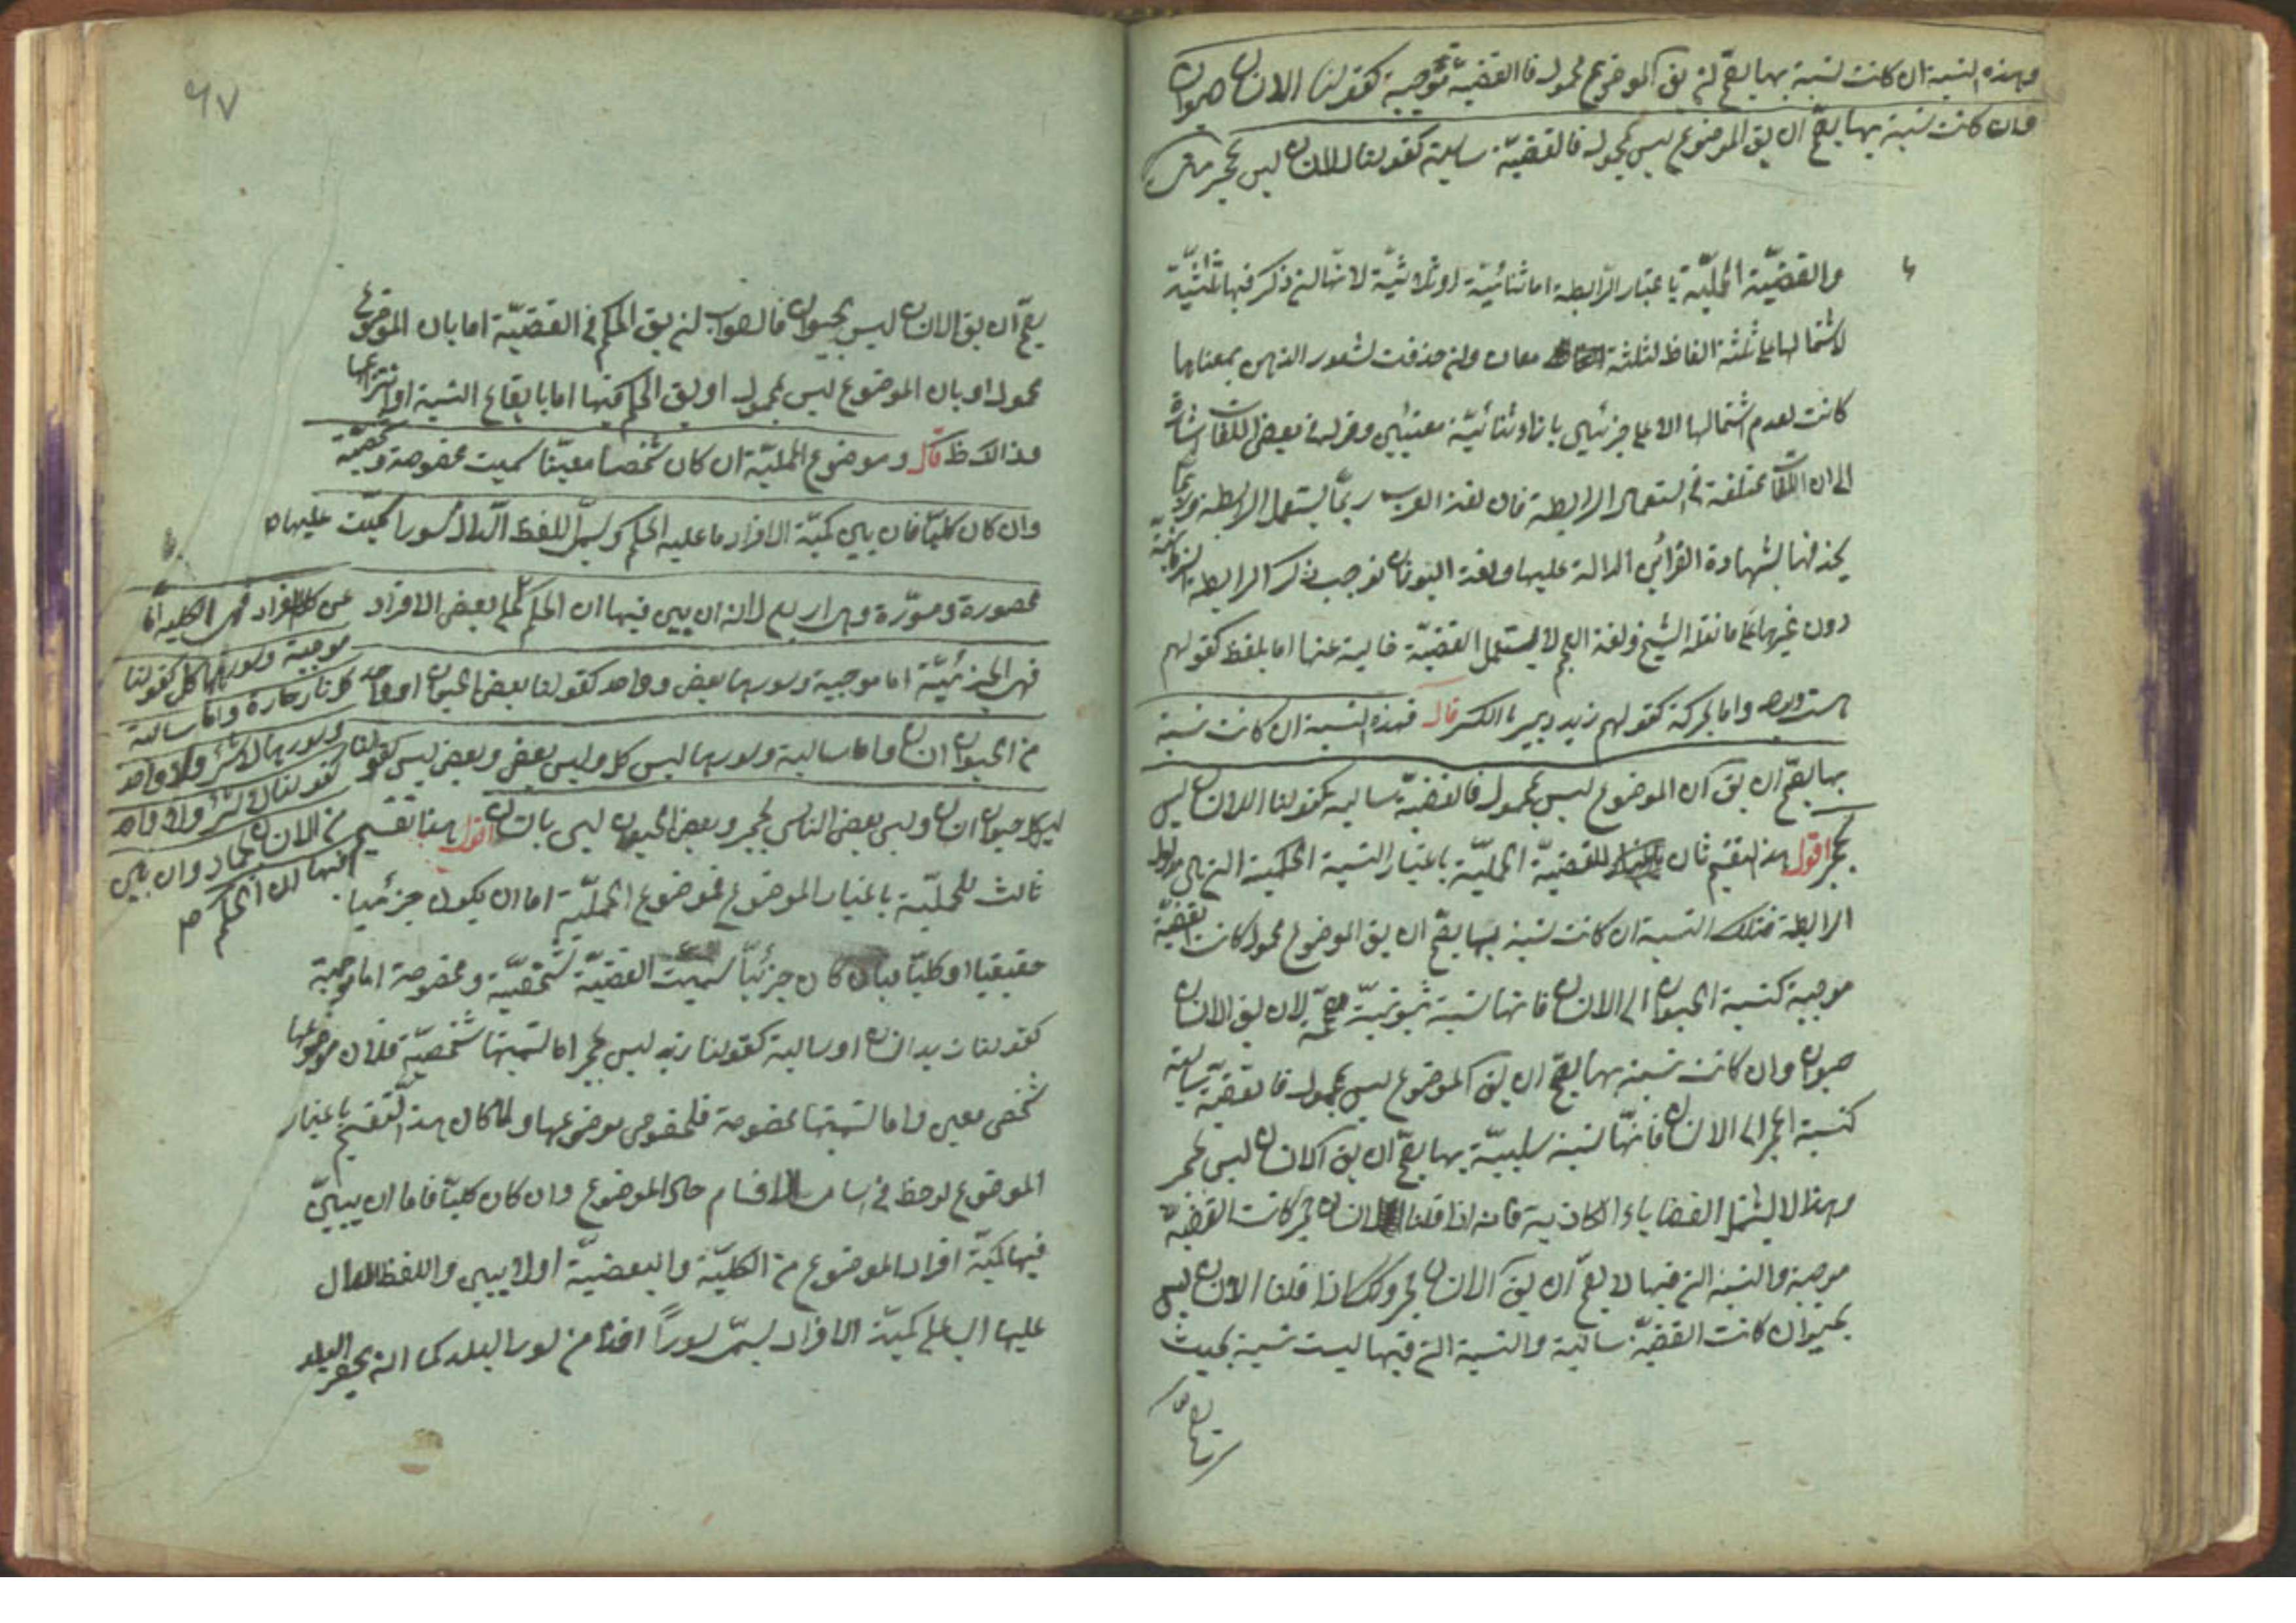 وهذه النسبة ان كانت نسبة بها يصح لن يق الموضوع محمول فالقضية موجبة كقولنا الانسان حيوان
وان كانت نسبة بها يصح ان يق الموضوع ليس بمحمول فالقضيّة سالبة كقولنا الانسان ليس بحجر
والقضيّة الحمليّة باعتبار الرّابطة اما ثنائيّة او ثلاثيّة لانها لن ذكر فيها
لاشتمالها على ثلثة الفاظ لثلثة معان ولن حذفت لشعور الذهن بمعناها
كانت لعدم اشتمالها الا على جزئين بازاء معنيين وقوله في بعض اللغات اشارة
الى ان اللغات مختلفة في استعمال الرابطة فان لغة العرب ربّما يستعمل الرابطة وربما
يحذفها بشهادة القرائن الدالة عليها ولغة اليونان توجب ذكر الرابطة الزمانيّة
دون غيرها على ما نقله الشيخ ولغة العجم لا يستعمل القضيّة خالية عنها اما بلفظ كقولهم
هست وبود واما بحركة كقولهم زيد دبير بالكسر قال فهذه النسبة ان كانت نسبة
بها يصحّ ان يق ان الموضوع ليس بمحمول فالقضيّة سالبة كقولنا الانسان ليس
بحجر اقول هذا تقسيم ثان للقضيّة الحمليّة باعتبار النسبة الحكمية التي هي مدلول
الرابطة فتلك النسبة ان كانت نسبة بها يصحّ ان يق الموضوع محمول كانت القضيّة
موجبة كنسبة الحيوان الى الانسان فانها نسبة ثبوتيّة مصححة لان يق الانسان
حيوان وان كانت نسبة بها يصحّ ان يق الموضوع ليس بمحمول فالقضيّة سالبة
كنسبة الحجر الى الانسان فانها نسبة سلبيّة بها يصحّ ان يق الانسان ليس بحجر
وهذا لا يشتمل القضاياء الكاذبة فانه اذا قلنا الانسان حجر كانت القضيّة
موجبة والنسبة التي فيها لا يصحّ ان يق الانسان حجر وكك اذا قلنا الانسان ليس
بحيوان كانت القضيّة سالبة والنسبة التي فيها ليست نسبة بحيث
٦٧
يصحّ ان يق الانسان ليس بحيوان فالصواب لن يق الحكم في القضيّة اما بان الموضوع
محمول او بان الموضوع ليس بمحمول او يق الحكم فيها اما بايقاع النسبة او انتزاعها
وذالك ظ قال وموضوع الحمليّة ان كان شخصا معينّا سميت مخصوصة وشخصيّة
وان كان كليّا فان بين كميّة الافراد ما عليه الحكم ويسمّى اللفظ الدّال سورا سميت عليها
محصورة ومسوّرة وهى اربع لانه ان بين فيها ان الحكم على بعض الافراد
فهى الجزئيّة اما موجبة وسورها بعض وواحد كقولنا بعض الحيوان او واحد
من الحيوان انسان واما سالبة وسورها ليس كل وليس بعض وبعض ليس كقولنا
ليس كل حيوان انسان وليس بعض الناس بحجر وبعض الحيوان ليس بانسان اقول هذا تقسيم
ثالث للحمليّة باعتبار الموضوع فموضوع الحمليّة اما ان يكون جزئيا
حقيقيا او كليّا فان كان جزئيّا سميت القضيّة شخصيّة ومخصوصة اما موجبة
كقولنا زيد انسان او سالبة كقولنا زيد ليس بحجر اما تسميتها شخصيّة فلان موضوعها
شخص معين واما تسميتها مخصوصة فلخصوص موضوعها ولما كان هذا التقسيم باعتبار
الموضوع لوحظ في اسامى الاقسام حال الموضوع وان كان كليّا فاما ان يبيّن
فيها كميّة افراد الموضوع من الكليّة والبعضيّة او لا يبين واللفظ الدال
عليها اى على كميّة الافراد يسمّى سوراً اخذا من سور البلد كما انه يحصر البلد
على كل الافراد فهى الكلية اما
موجبة وسورها كل كقولنا
كل نار حارة واما سالبة
وسورها لا شئ ولا واحد
كقولنا لا شئ ولا واحد
من الانسان بجماد وان بين
فيها ان الحكم